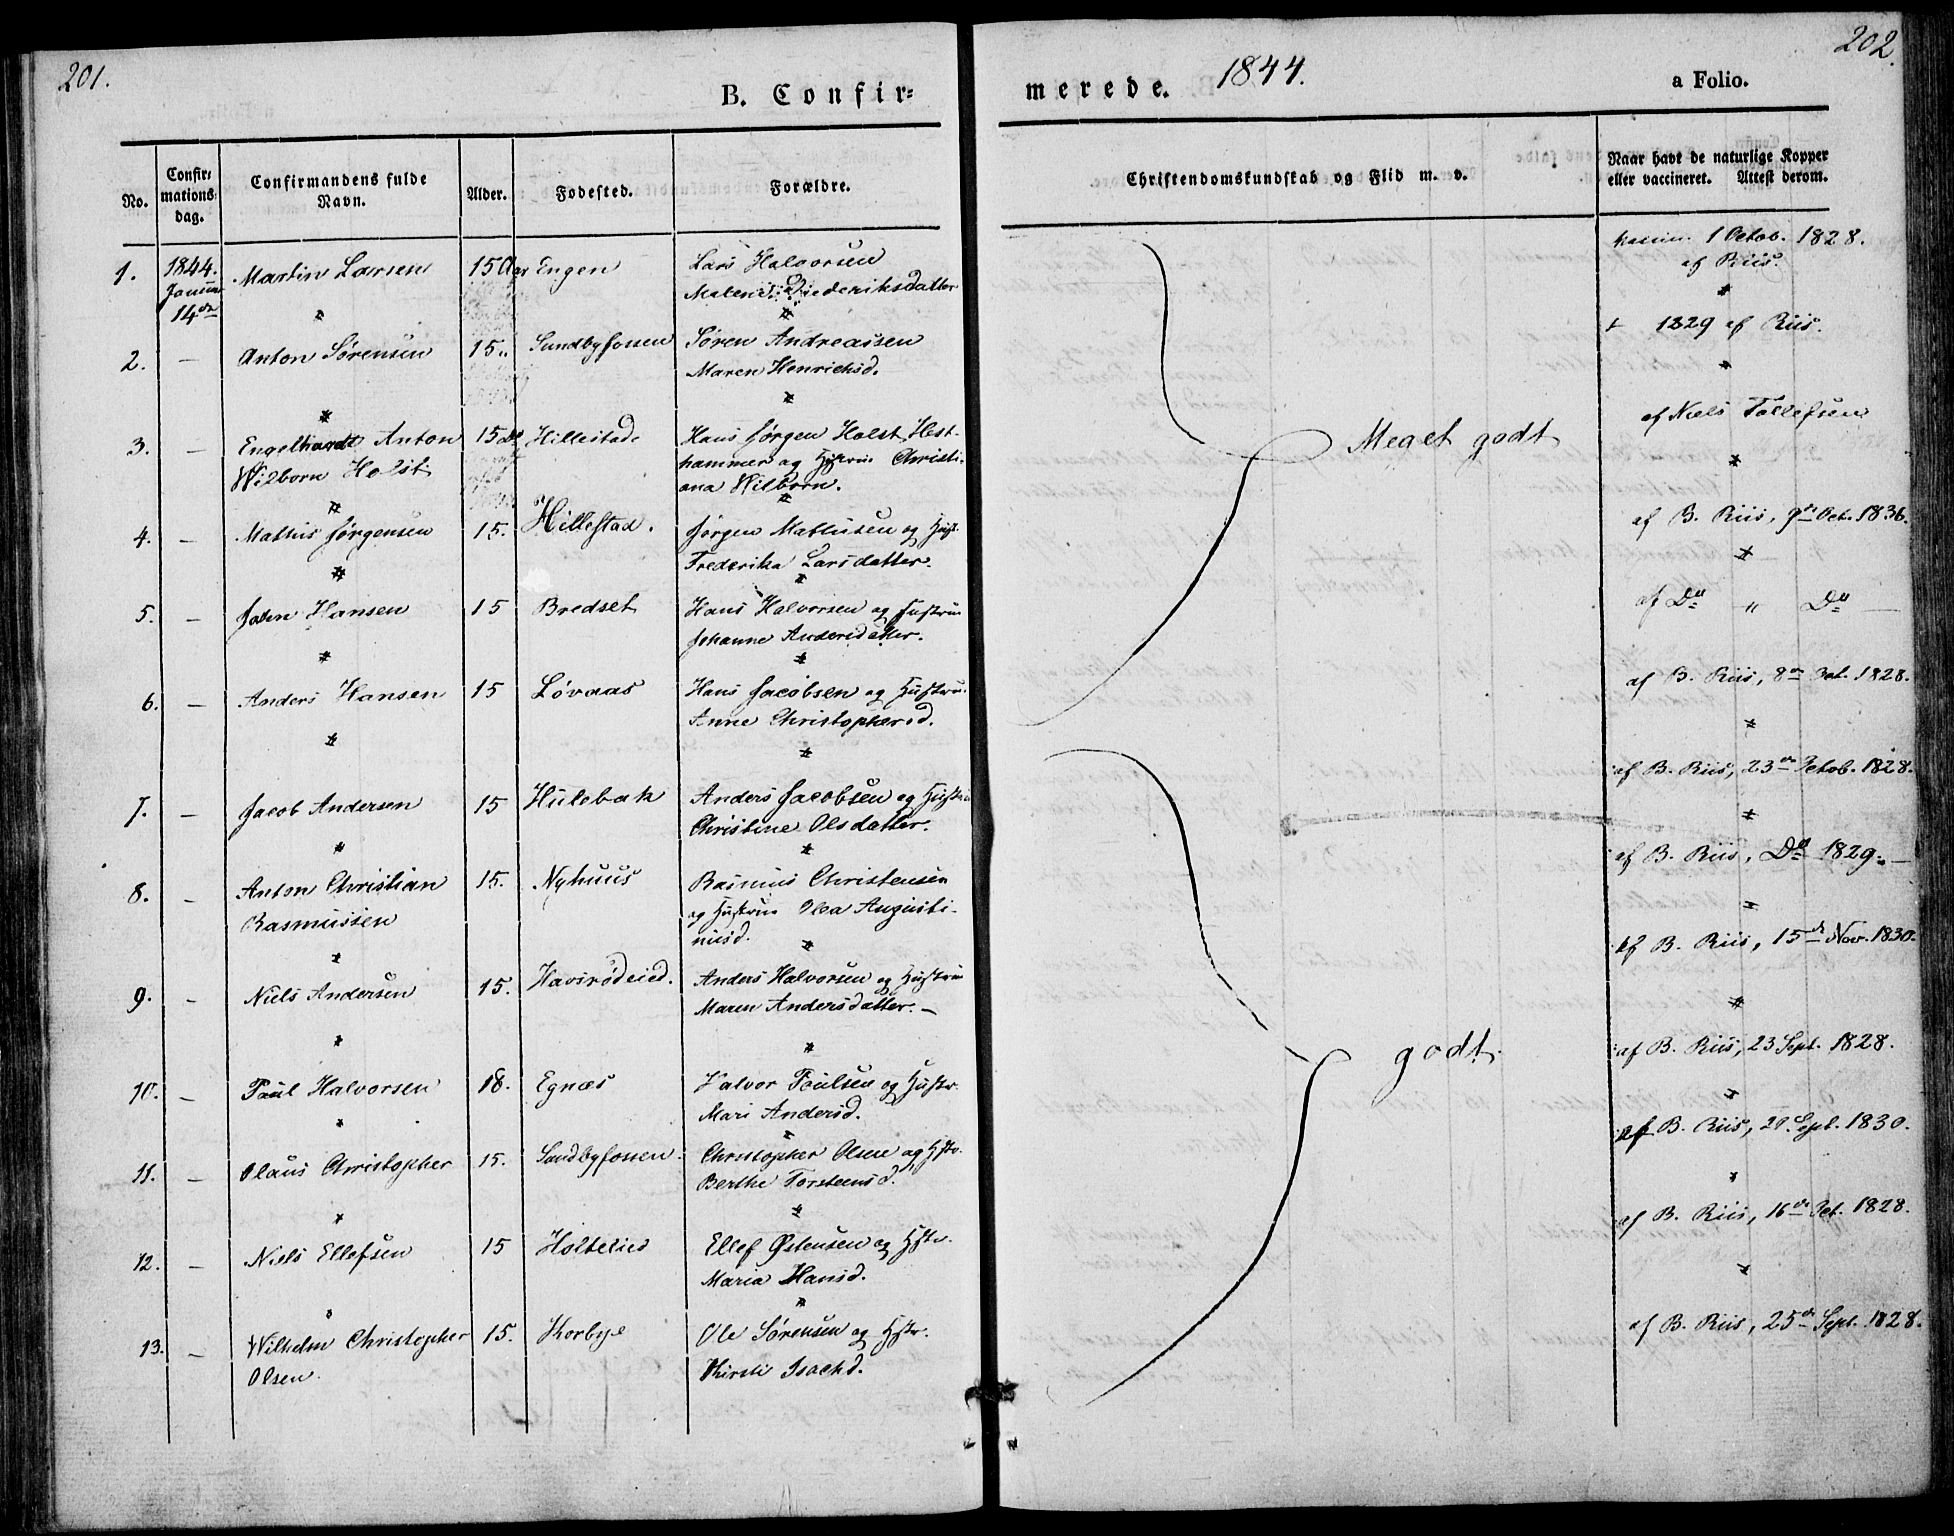 201.
B. Confir=
merede. 1844.
a Folio.
202.
No.
Confir=
mations=
dag.
Confirmandens fulde
Navn.
Alder.
Fødested.
Forældre.
Christendomskundskab og Flid m. v.
Naar havt de naturlige Kopper
eller vaccineret. Attest derom.
1. 1844. Martin Larsen 15 Aar Engen Lars Halvorsen 1 Octob. 1828.
Januar Diederiksdatter af Riis.
14de
2. — Anton Sørensen 15 Sundbyfossen Søren Andreassen 1829 af Riis.
Maren Henrichsd.
3. — Engelhardt Anton 15 Hillestad Hans Jørgen Holst, Hest- af Niels Tollefsen
Wilborn Holst hammer og Hustrue Christi-
ana Wilborn.
Meget godt
4. — Mathis Jørgensen 15. Hillestad. Jørgen Mathisen og Hust. af B. Riis, 9de Oct. 1836.
Frederika Larsdatter.
5. — Hansen 15 Bredset Hans Halvorsen og Hustrue af Do " Do —
Johanne Andersdatter.
6. — Anders Hansen 15 Løvaas Hans Jacobsen og Hustrue af B. Riis, 8de Oct. 1828.
Anne Christophersd.
7. — Jacob Andersen 15 Hulebak Anders Jacobsen og Hustrue af B. Riis, 23de Octob. 1828.
Christine Olsdatter.
8. — Anton Christian 15. Nyhuus Rasmus Christensen af B. Riis, Do 1829. —
Rasmussen og Hustrue Olea Augusti-
nusd.
9. — Niels Andersen 15. Havsrødeied. Anders Halvorsen og Hustrue af B. Riis, 15de Nov. 1830.
Maren Andersdatter. —
godt.
10. — Paul Halvorsen 18. Egnæs Halvor Paulsen og Hustr. af B. Riis, 23 Sept. 1828.
Mari Andersd.
11. — Olaus Christopher 15. Sundbyfossen. Christopher Olsen og Hstr. af B. Riis, Sept. 1830.
Berthe Torsteensd.
12. — Niels Ellefsen 15 Holteeied Ellef Østensen og Hstr. af B. Riis, 16de Oct. 1828.
Maria Hansd.
13. — Wilhelm Christopher 15. Korbye Ole Sørensen og Hstr. af B. Riis, 25de Sept. 1828.
Olsen. Kirsti Isachd.